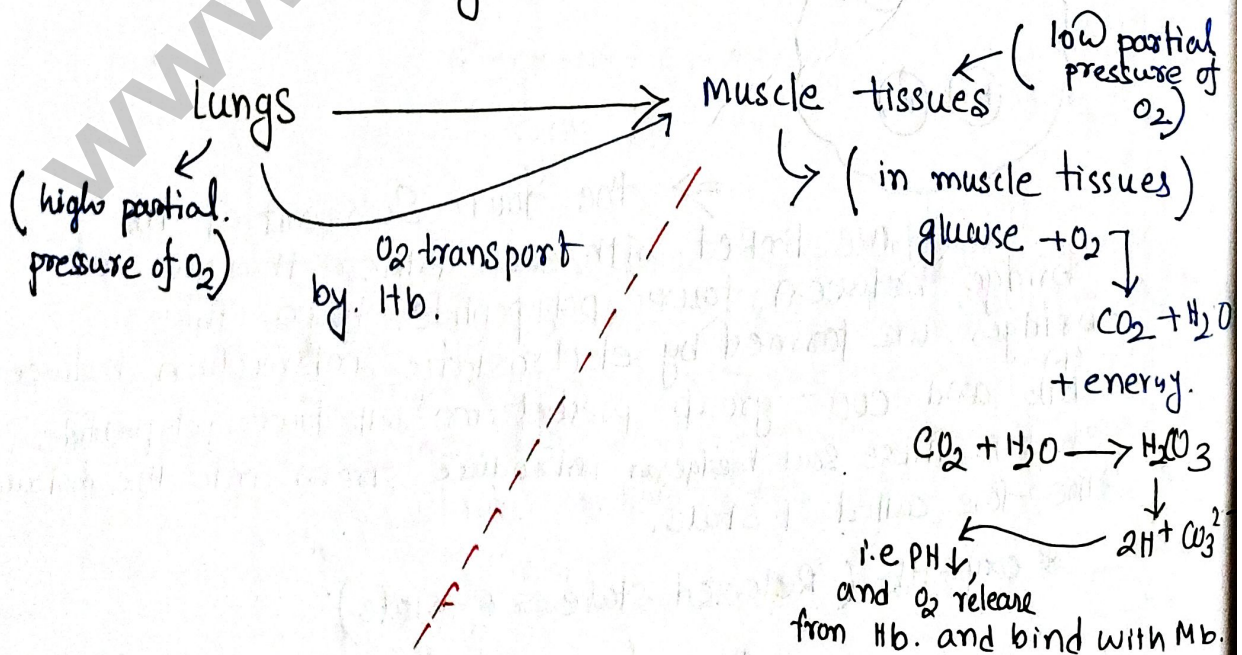 www
Lungs
Muscle tissues
(low partial
pressure of
O₂)
(high partial.
pressure of O₂)
O₂ transport
by. Hb.
(in muscle tissues)
glucose + O₂
CO₂ + H₂O
+ energy.
CO₂ + H₂O → H₂CO₃
2H⁺ CO₃²
i.e PH↓,
and O₂ release
from Hb. and bind with Mb.